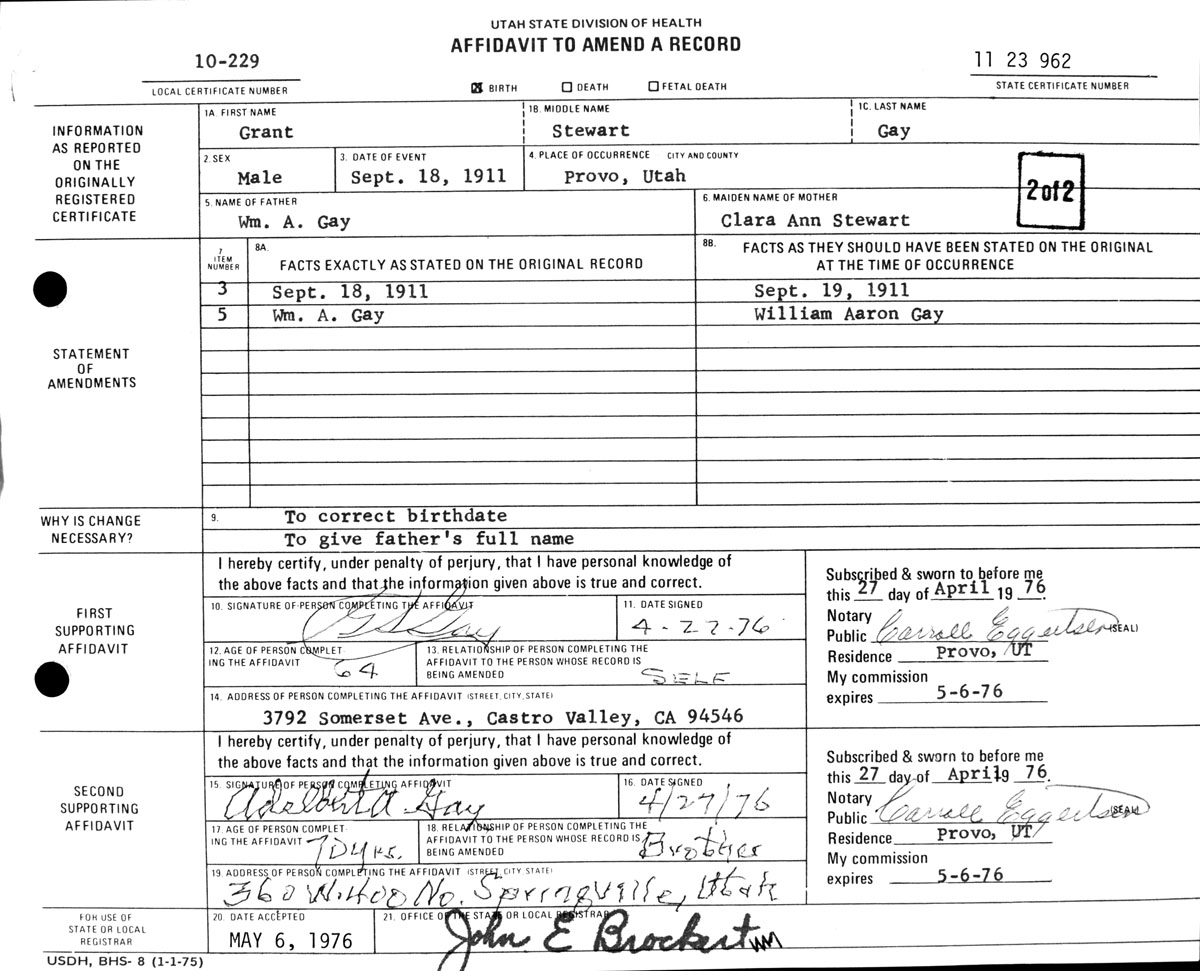 UTAH STATE DIVISION OF HEALTH
AFFIDAVIT TO AMEND A RECORD
10-229
11 23 962
LOCAL CERTIFICATE NUMBER
BIRTH DEATH FETAL DEATH
STATE CERTIFICATE NUMBER
INFORMATION
AS REPORTED
ON THE
ORIGINALLY
REGISTERED
CERTIFICATE
1A FIRST NAME
Grant
1B. MIDDLE NAME
Stewart
1C. LAST NAME
Gay
2. SEX
Male
3. DATE OF EVENT
Sept. 18, 1911
4. PLACE OF OCCURRENCE CITY AND COUNTY
Provo, Utah
2 of 2
5. NAME OF FATHER
Wm. A. Gay
6. MAIDEN NAME OF MOTHER
Clara Ann Stewart
STATEMENT
OF
AMENDMENTS
7
ITEM
NUMBER
8A.
FACTS EXACTLY AS STATED ON THE ORIGINAL RECORD
8B.
FACTS AS THEY SHOULD HAVE BEEN STATED ON THE ORIGINAL
AT THE TIME OF OCCURRENCE
3 Sept. 18, 1911 Sept. 19, 1911
5 Wm. A. Gay William Aaron Gay
WHY IS CHANGE
NECESSARY?
9. To correct birthdate
To give father's full name
FIRST
SUPPORTING
AFFIDAVIT
I hereby certify, under penalty of perjury, that I have personal knowledge of
the above facts and that the information given above is true and correct.
10. SIGNATURE OF PERSON COMPLETING THE AFFIDAVIT
G S Gay
11. DATE SIGNED
4-27-76
12. AGE OF PERSON COMPLET
ING THE AFFIDAVIT
64
13. RELATIONSHIP OF PERSON COMPLETING THE
AFFIDAVIT TO THE PERSON WHOSE RECORD IS
BEING AMENDED
SELF
14. ADDRESS OF PERSON COMPLETING THE AFFIDAVIT (STREET, CITY, STATE)
3792 Somerset Ave., Castro Valley, CA 94546
Subscribed & sworn to before me
this 27 day of April 19 76.
Notary
Public Carroll Eggertsen (SEAL)
Residence Provo, UT
My commission
expires 5-6-76
SECOND
SUPPORTING
AFFIDAVIT
I hereby certify, under penalty of perjury, that I have personal knowledge of
the above facts and that the information given above is true and correct.
15. SIGNATURE OF PERSON COMPLETING AFFIDAVIT
Adelbert A. Gay
16. DATE SIGNED
4/27/76
17. AGE OF PERSON COMPLET
ING THE AFFIDAVIT
70 yrs.
18. RELATIONSHIP OF PERSON COMPLETING THE
AFFIDAVIT TO THE PERSON WHOSE RECORD IS
BEING AMENDED
Brother
19. ADDRESS OF PERSON COMPLETING THE AFFIDAVIT (STREET, CITY, STATE)
360 W. 400 No. Springville, Utah
Subscribed & sworn to before me
this 27 day of April 19 76.
Notary
Public Carroll Eggertsen (SEAL)
Residence Provo, UT
My commission
expires 5-6-76
FOR USE OF
STATE OR LOCAL
REGISTRAR
20. DATE ACCEPTED
MAY 6, 1976
21. OFFICE OF THE STATE OR LOCAL REGISTRAR
John E Brockert
USDH, BHS- 8 (1-1-75)